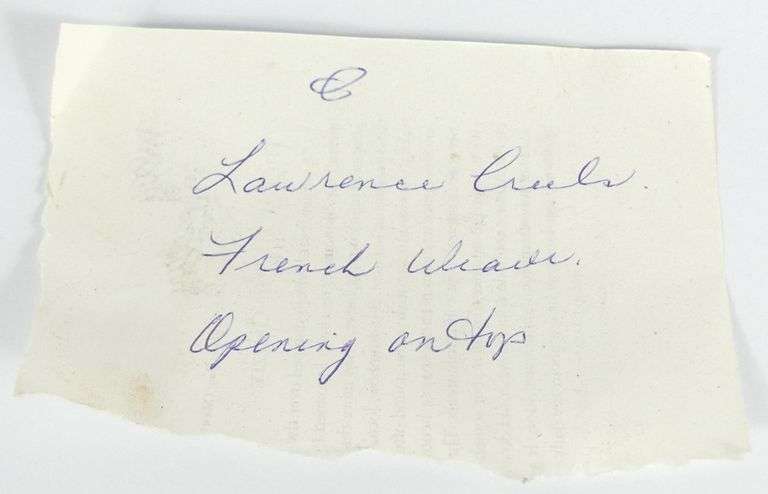 C
Lawrence Creels.
French Weave.
Opening on top